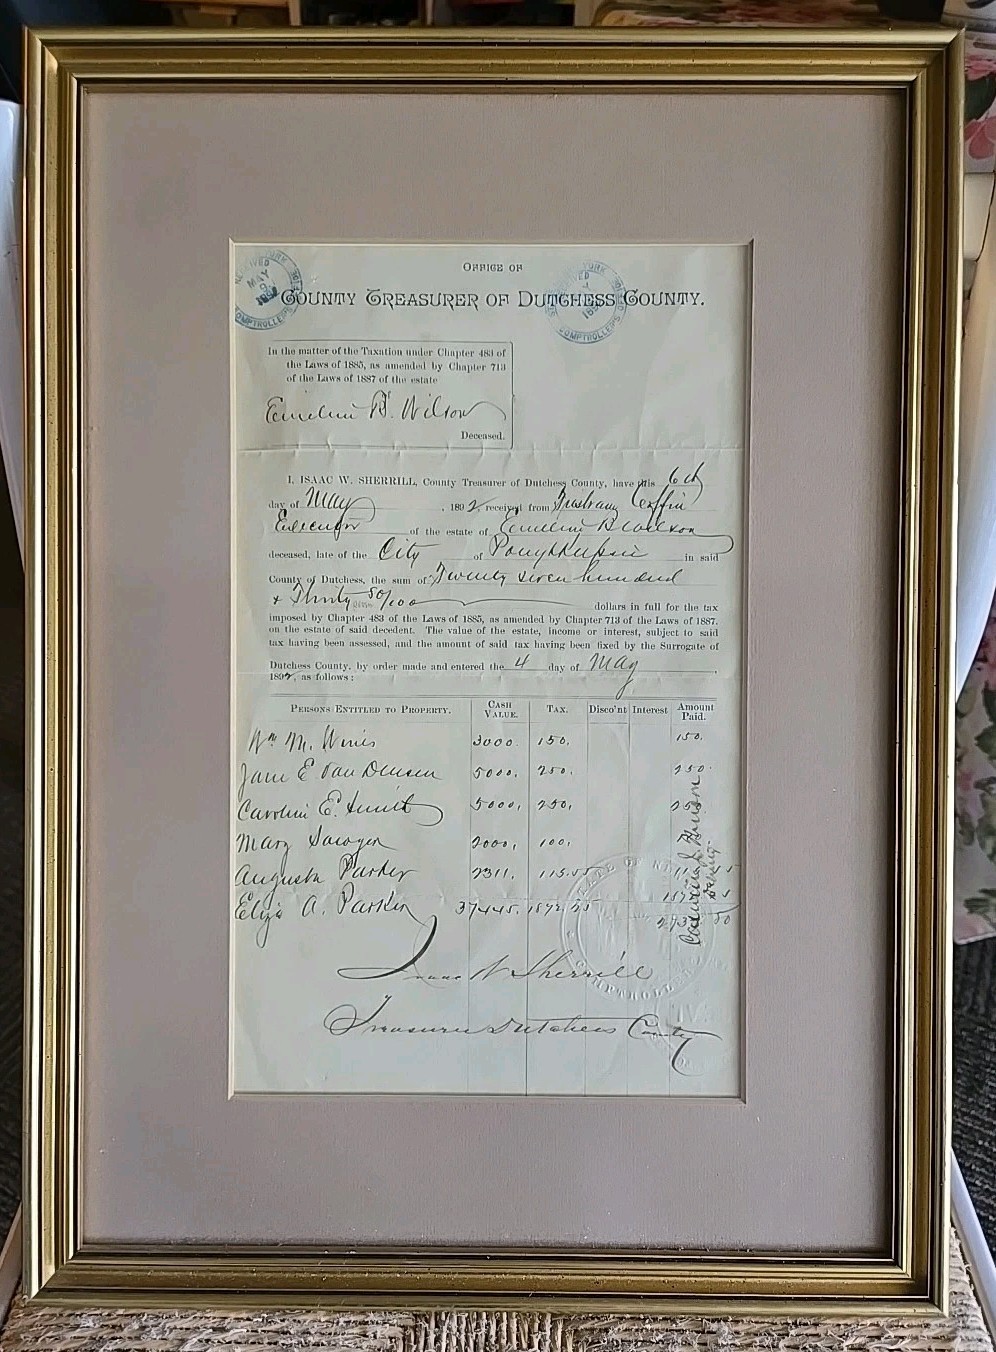 OFFICE OF
COUNTY TREASURER OF DUTCHESS COUNTY.
RECEIVED
MAY
189
COMPTROLLER'S
YORK
189
COMPTROLLER'S
In the matter of the Taxation under Chapter 483 of
the Laws of 1885, as amended by Chapter 713
of the Laws of 1887 of the estate
Emeline B. Wilson
Deceased.
I, ISAAC W. SHERRILL, County Treasurer of Dutchess County, have this 6th
day of May, 1892, received from Tristram Coffin
Executor of the estate of Emeline B Wilson
deceased, late of the City of Poughkeepsie in said
County of Dutchess, the sum of Twenty seven hundred
& Thirty 80/100 dollars in full for the tax
imposed by Chapter 483 of the Laws of 1885, as amended by Chapter 713 of the Laws of 1887.
on the estate of said decedent. The value of the estate, income or interest, subject to said
tax having been assessed, and the amount of said tax having been fixed by the Surrogate of
Dutchess County, by order made and entered the 4 day of May
1892, as follows:
PERSONS ENTITLED TO PROPERTY. CASH VALUE. TAX. Disco'nt Interest Amount Paid.
Wm M. 3000. 150. 150.
Jane E Van Deusen 5000. 250. 250.
Caroline E. Smith 5000. 250. 25
Mary Sawyer 2000. 100.
Augusta Parker 2311. 115.55
Eliza A. Parker 37445. 1872.25
Deputy
STATE OF
COMPTROLLER
Isaac W Sherrill
Treasurer Dutchess County